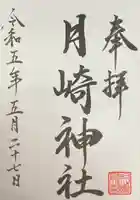 奉拝
月崎神社
令和五年五月二十七日